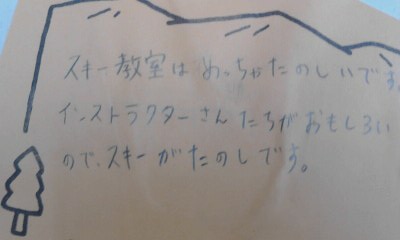 スキー教室はめっちゃたのしいです。
インストラクターさんたちがおもしろい
ので、スキーがたのしです。